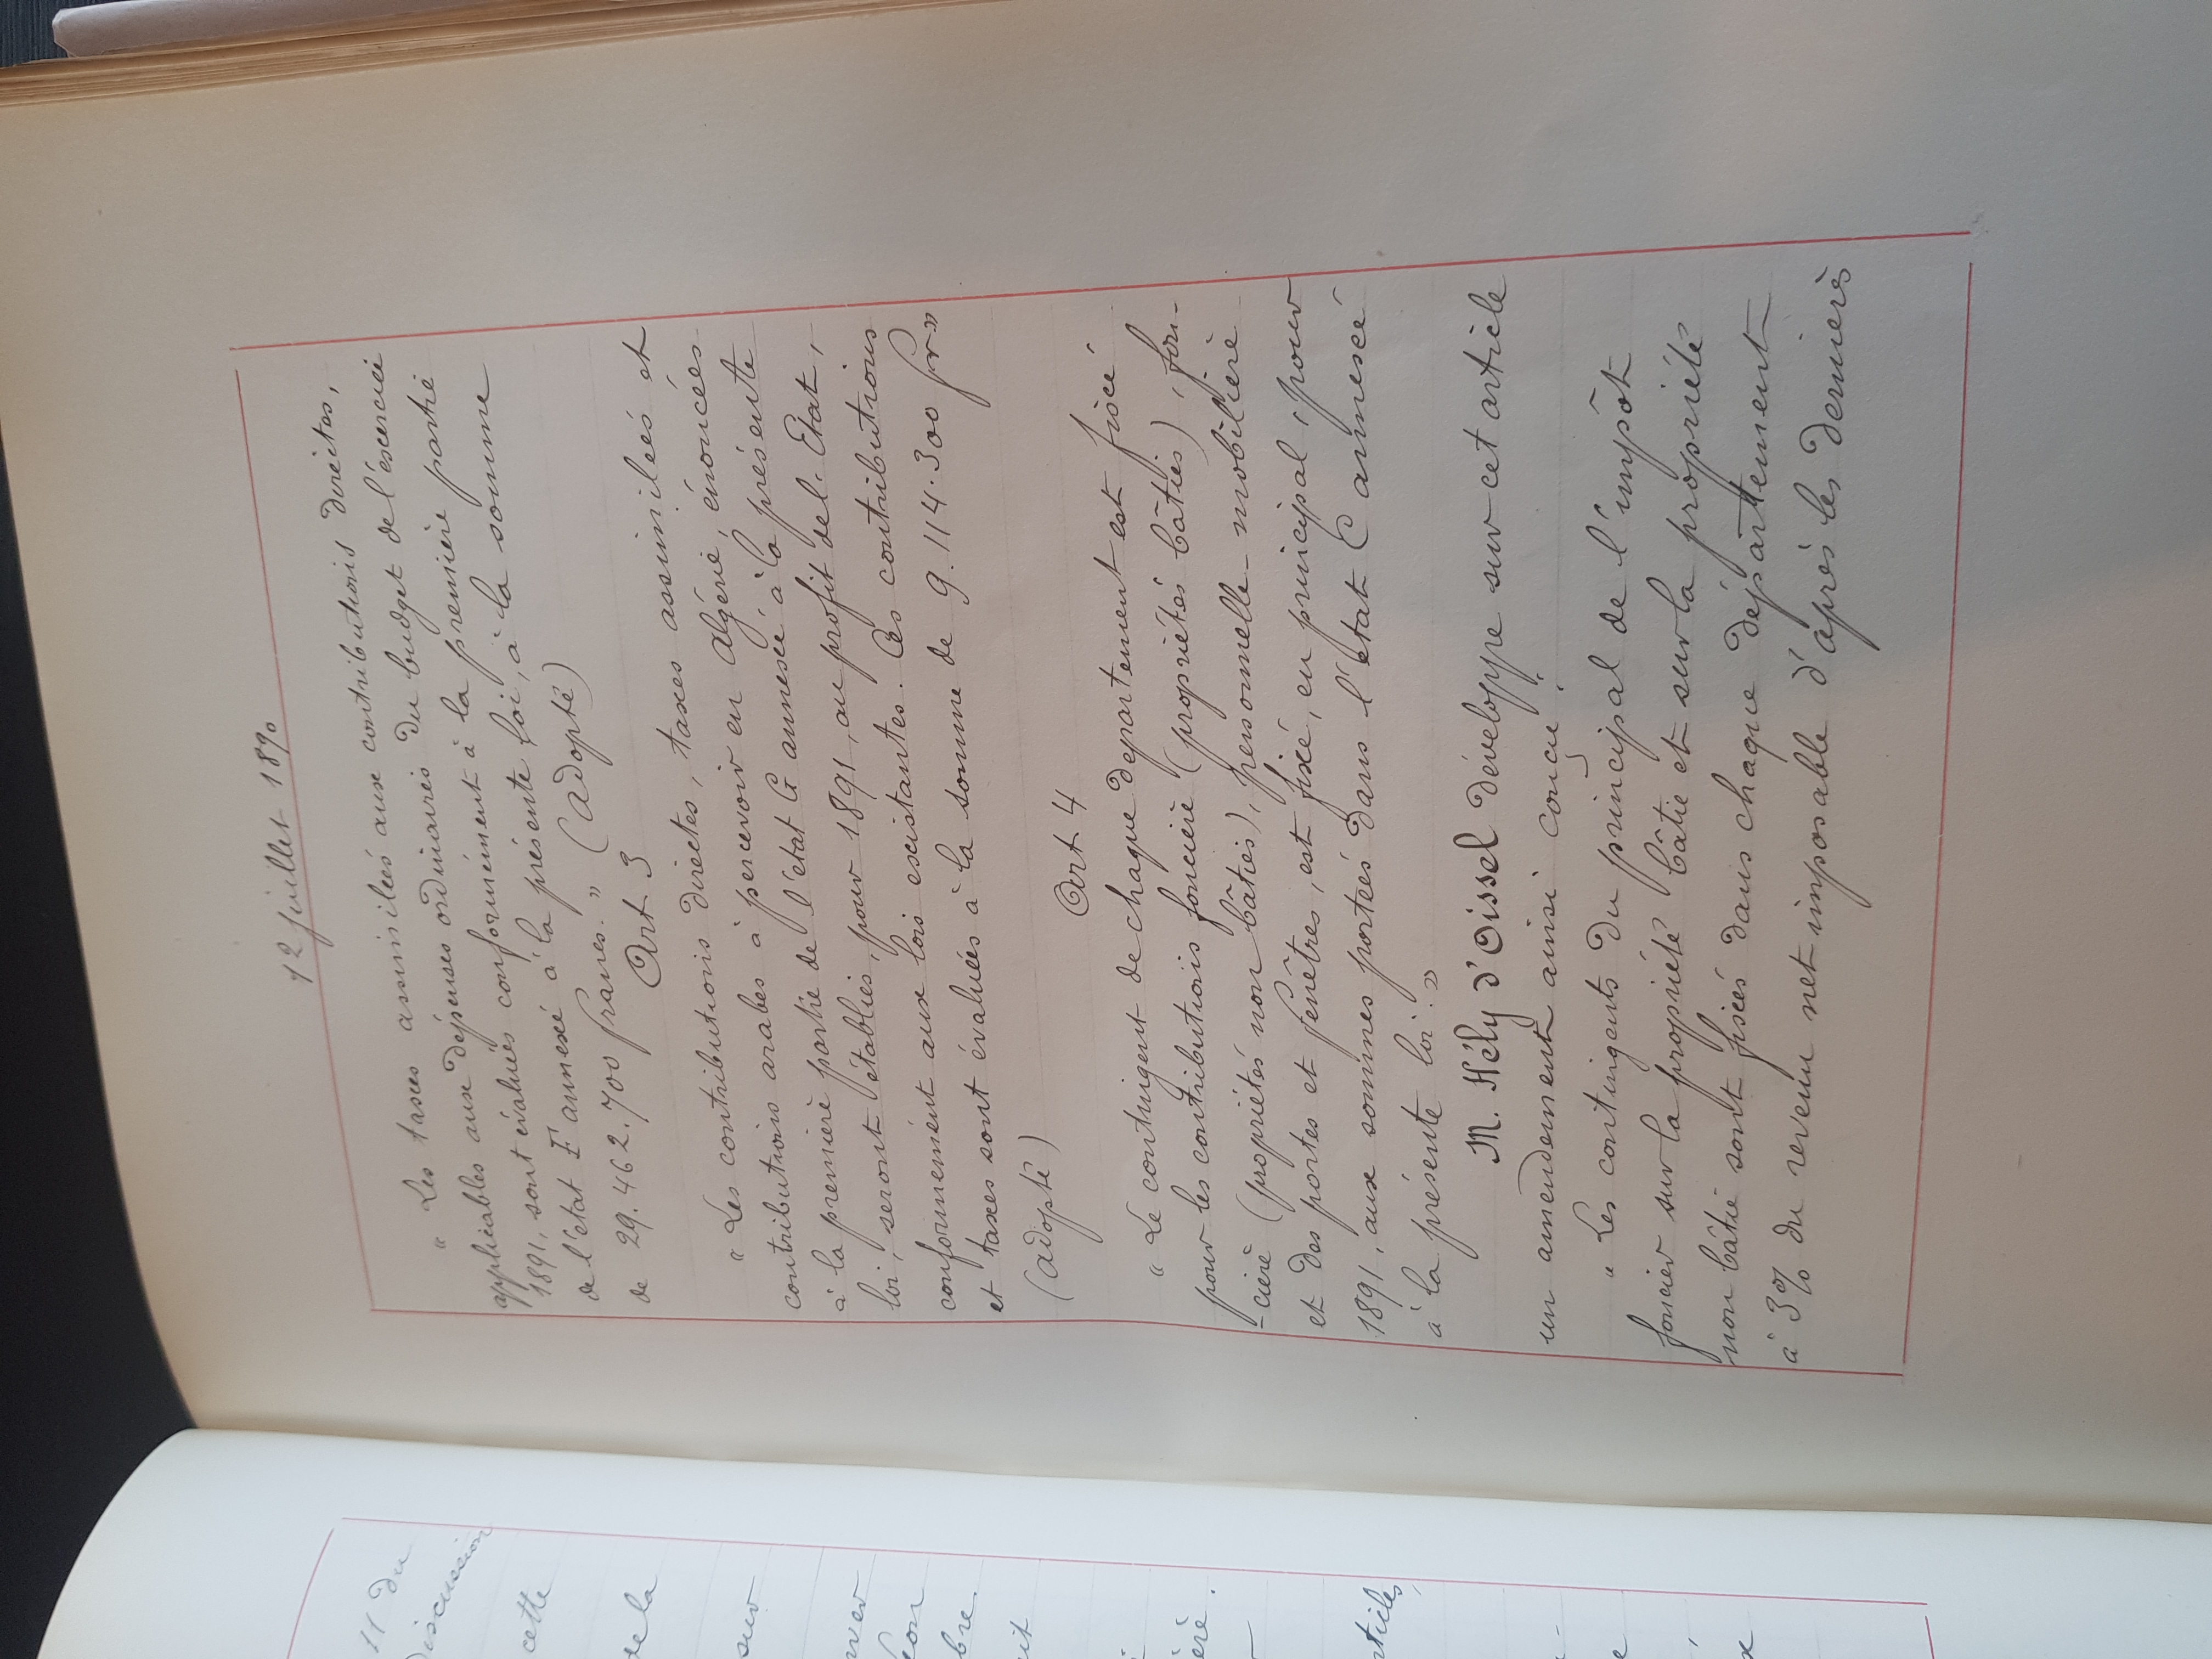 11 du
Discussion
cette
de la
sur
bre
articles,
12 juillet 1890
" Les taxes assimilées aux contributions directes,
applicables aux dépenses ordinaires du budget de l'exercice
1891, sont évaluées conformément à la première partie
de l'état F annexé à la présente loi, à la somme
de 29.462.700 francs. " (adopté)
Art 3
" Les contributions directes, taxes assimilées et
contributions arabes à percevoir en Algérie, énoncées
à la première partie de l'état G annexé à la présente
loi, seront établies, pour 1891, au profit de l'Etat,
conformément aux lois existantes. Ces contributions
et taxes sont évaluées à la somme de 9.114.300 fr »
(adopté)
Art 4
" Le contingent de chaque département est fixé
pour les contributions foncière (propriétés bâties), fon-
-cière (propriétés non bâties), personnelle-mobilière
et des portes et fenêtres, est fixé, en principal, pour
1891, aux sommes portées dans l'état C annexé
à la présente loi. »
M. Hély d'Oissel développe sur cet article
un amendement ainsi conçu :
" Les contingents du principal de l'impôt
foncier sur la propriété bâtie et sur la propriété
non bâtie sont fixés dans chaque département
à 3% du revenu net imposable d'après les dernières